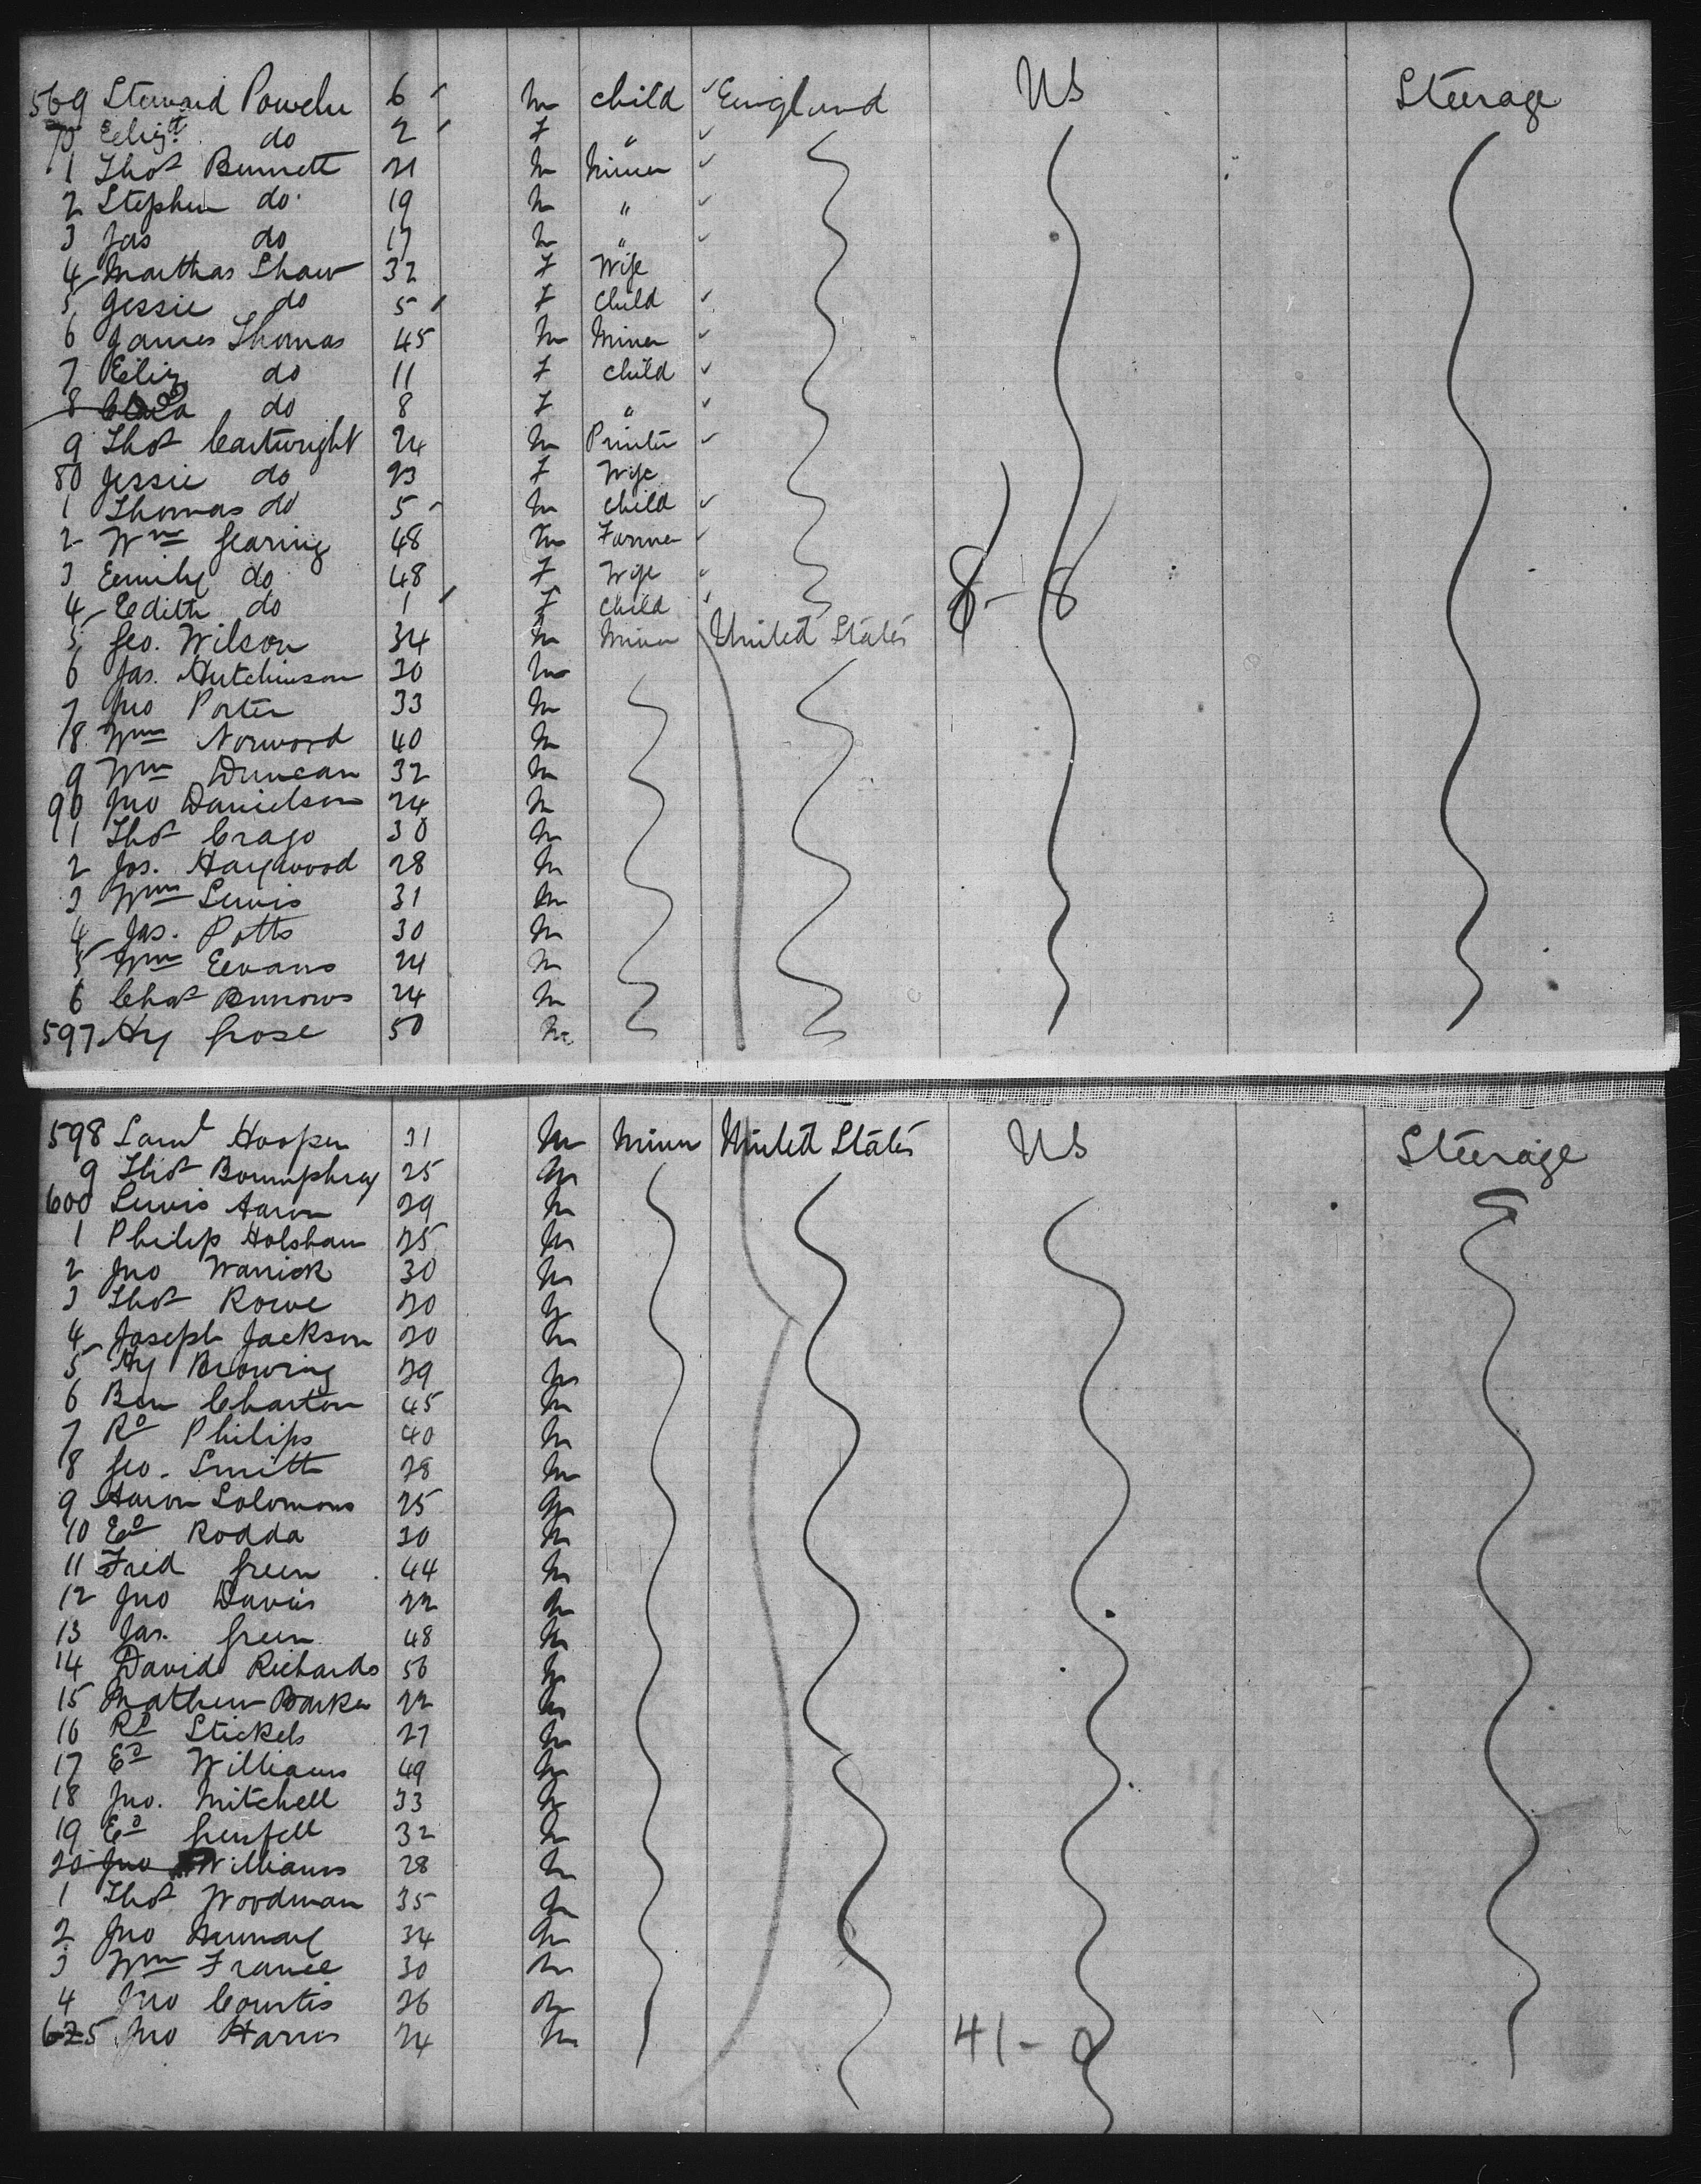 569 Steward Powelu 6 m child England US Steerage
70 Eliz.th do 2 F "
1 Thos Bennett 21 m Miner
2 Stephen do 19 m "
3 Jas do 17 m "
4 Marthas Shaw 32 F Wife
5 Jessie do 5 F Child
6 James Thomas 45 m Miner
7 Eliz do 11 F child
8 Clara do 8 F "
9 Thos Cartwright 24 m Printer
80 Jessie do 23 F Wife
1 Thomas do 5 m child
2 Wm Gearing 48 m Farmer
3 Emily do 48 F Wife 8-8
4 Edith do 1 F child
5 Geo. Wilson 34 m Miner United States
6 Jas. Hutchinson 30 m
7 Jno Porter 33 m
8 Wm Norwood 40 m
9 Wm Duncan 32 m
90 Jno Danielson 24 m
1 Thos Crago 30 m
2 Jos. Haywood 28 m
3 Wm Lewis 31 m
4 Jas. Potts 30 m
5 Wm Evans 24 m
6 Chas Burrows 24 m
597 Hy Grose 50 m
598 Saml Hooper 31 m Miner United States US Steerage
9 Thos Boumphray 25 m
600 Lewis Aaron 29 m
1 Philip Holsham 25 m
2 Jno Warrick 30 m
3 Thos Rowe 20 m
4 Joseph Jackson 20 m
5 Hy Browing 29 m
6 Ben Charton 45 m
7 Rd Philips 40 m
8 Geo. Smith 28 m
9 Aaron Solomons 25 m
10 Ed Rodda 30 m
11 Fred Green 44 m
12 Jno Davis 22 m
13 Jas. Green 48 m
14 David Richards 56 m
15 Mathew Barker 22 m
16 Rd Stickels 27 m
17 Ed Williams 49 m
18 Jno. Mitchell 33 m
19 Ed Grenfell 32 m
20 Jno Williams 28 m
1 Thos Woodman 35 m
2 Jno 34 m
3 Wm France 30 m
4 Jno Courtis 26 m
625 Jno Harris 24 m 41-0